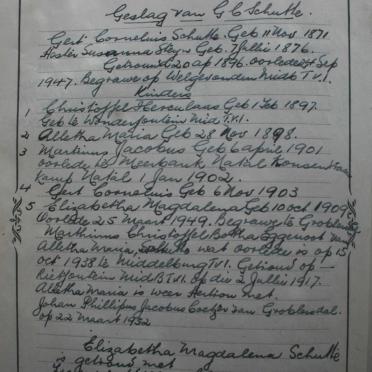 Geslag van G C Schutte.
Gert Cornelius Schutte. Geb 11 Nov 1871
Hester Susanna Steyn Geb. 7 Julie 1876.
Getroud 20 ap 1896. oorlede 24 Sep
1947. Begrawe op Welgevonden Midb Tvl.
Kinders
1 Christoffel Herculaas Geb 1 Feb 1897.
Geb te Wonderfontein Mid T.v.l.
2 Alletha Maria Geb 28 Nov 1898.
3 Martinus Jacobus Geb 6 april 1901
oorlede te Meerbank Natal Konsentrasie
Kamp Natal 1 Jan 1902.
4 Gert Cornelius Geb 6 Nov 1903
5 Elizabetha Magdalena Geb 10 oct 1909
Oorlede 25 Maart 1949. Begrawe te Groblersdal
Marthinus Christoffel Botha Eggenoot van
Alletha Maria, Schutte wat oorlede is op 15
oct 1938 te Middelburg Tvl. Getroud op
Rietfontein Mid B Tvl. op die 2 Julie 1917.
Alletha Maria is weer Hertrou met
Johan Phillipus Jacobus Coetzer van Groblersdal.
op 22 Maart 1952
Elizabetha Magdalena Schutte
is getroud met